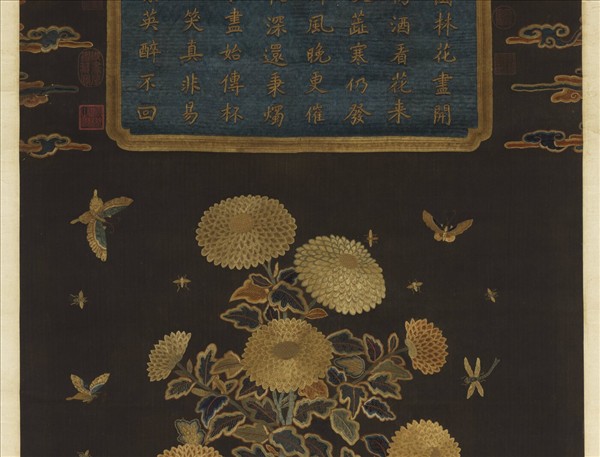 林花盡開
酒看花来
蕋寒仍發
風晚更催
深還秉燭
盡始傳杯
笑真非易
英醉不回